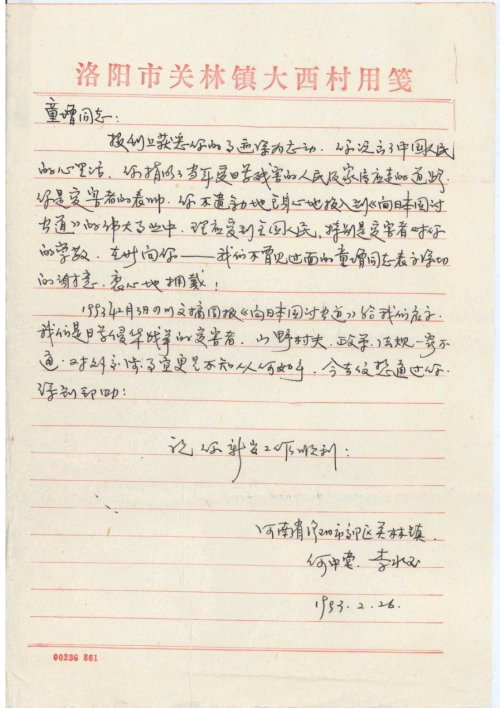 洛阳市关林镇大西村用笺
童增同志:
报刊上获悉你的事迹深为感动。你说出了中国人民
的心里话,你指明了当年受日军残害的人民及家属应走的道路,
你是受害者的表帅。你不遗余力地全身心地投入到《向日本国讨
书道》的伟大事业中,理应受到全国人民,特别是受害者对你
的崇敬。在此向你——我们不曾见过面的童增同志表示深切
的谢意,衷心地拥戴!
1993年2月3日四川文摘周报《向日本国讨书道》给我们启示,
我们是日军侵华战争的受害者。山野村夫,政策、法规一窍不
通,对
事宜更是不知从何如手,今去信想通过你
得到帮助:
祝你新岁工作顺利:
河南省洛阳市郊区关林镇
李
1993.2.26.
00236 861